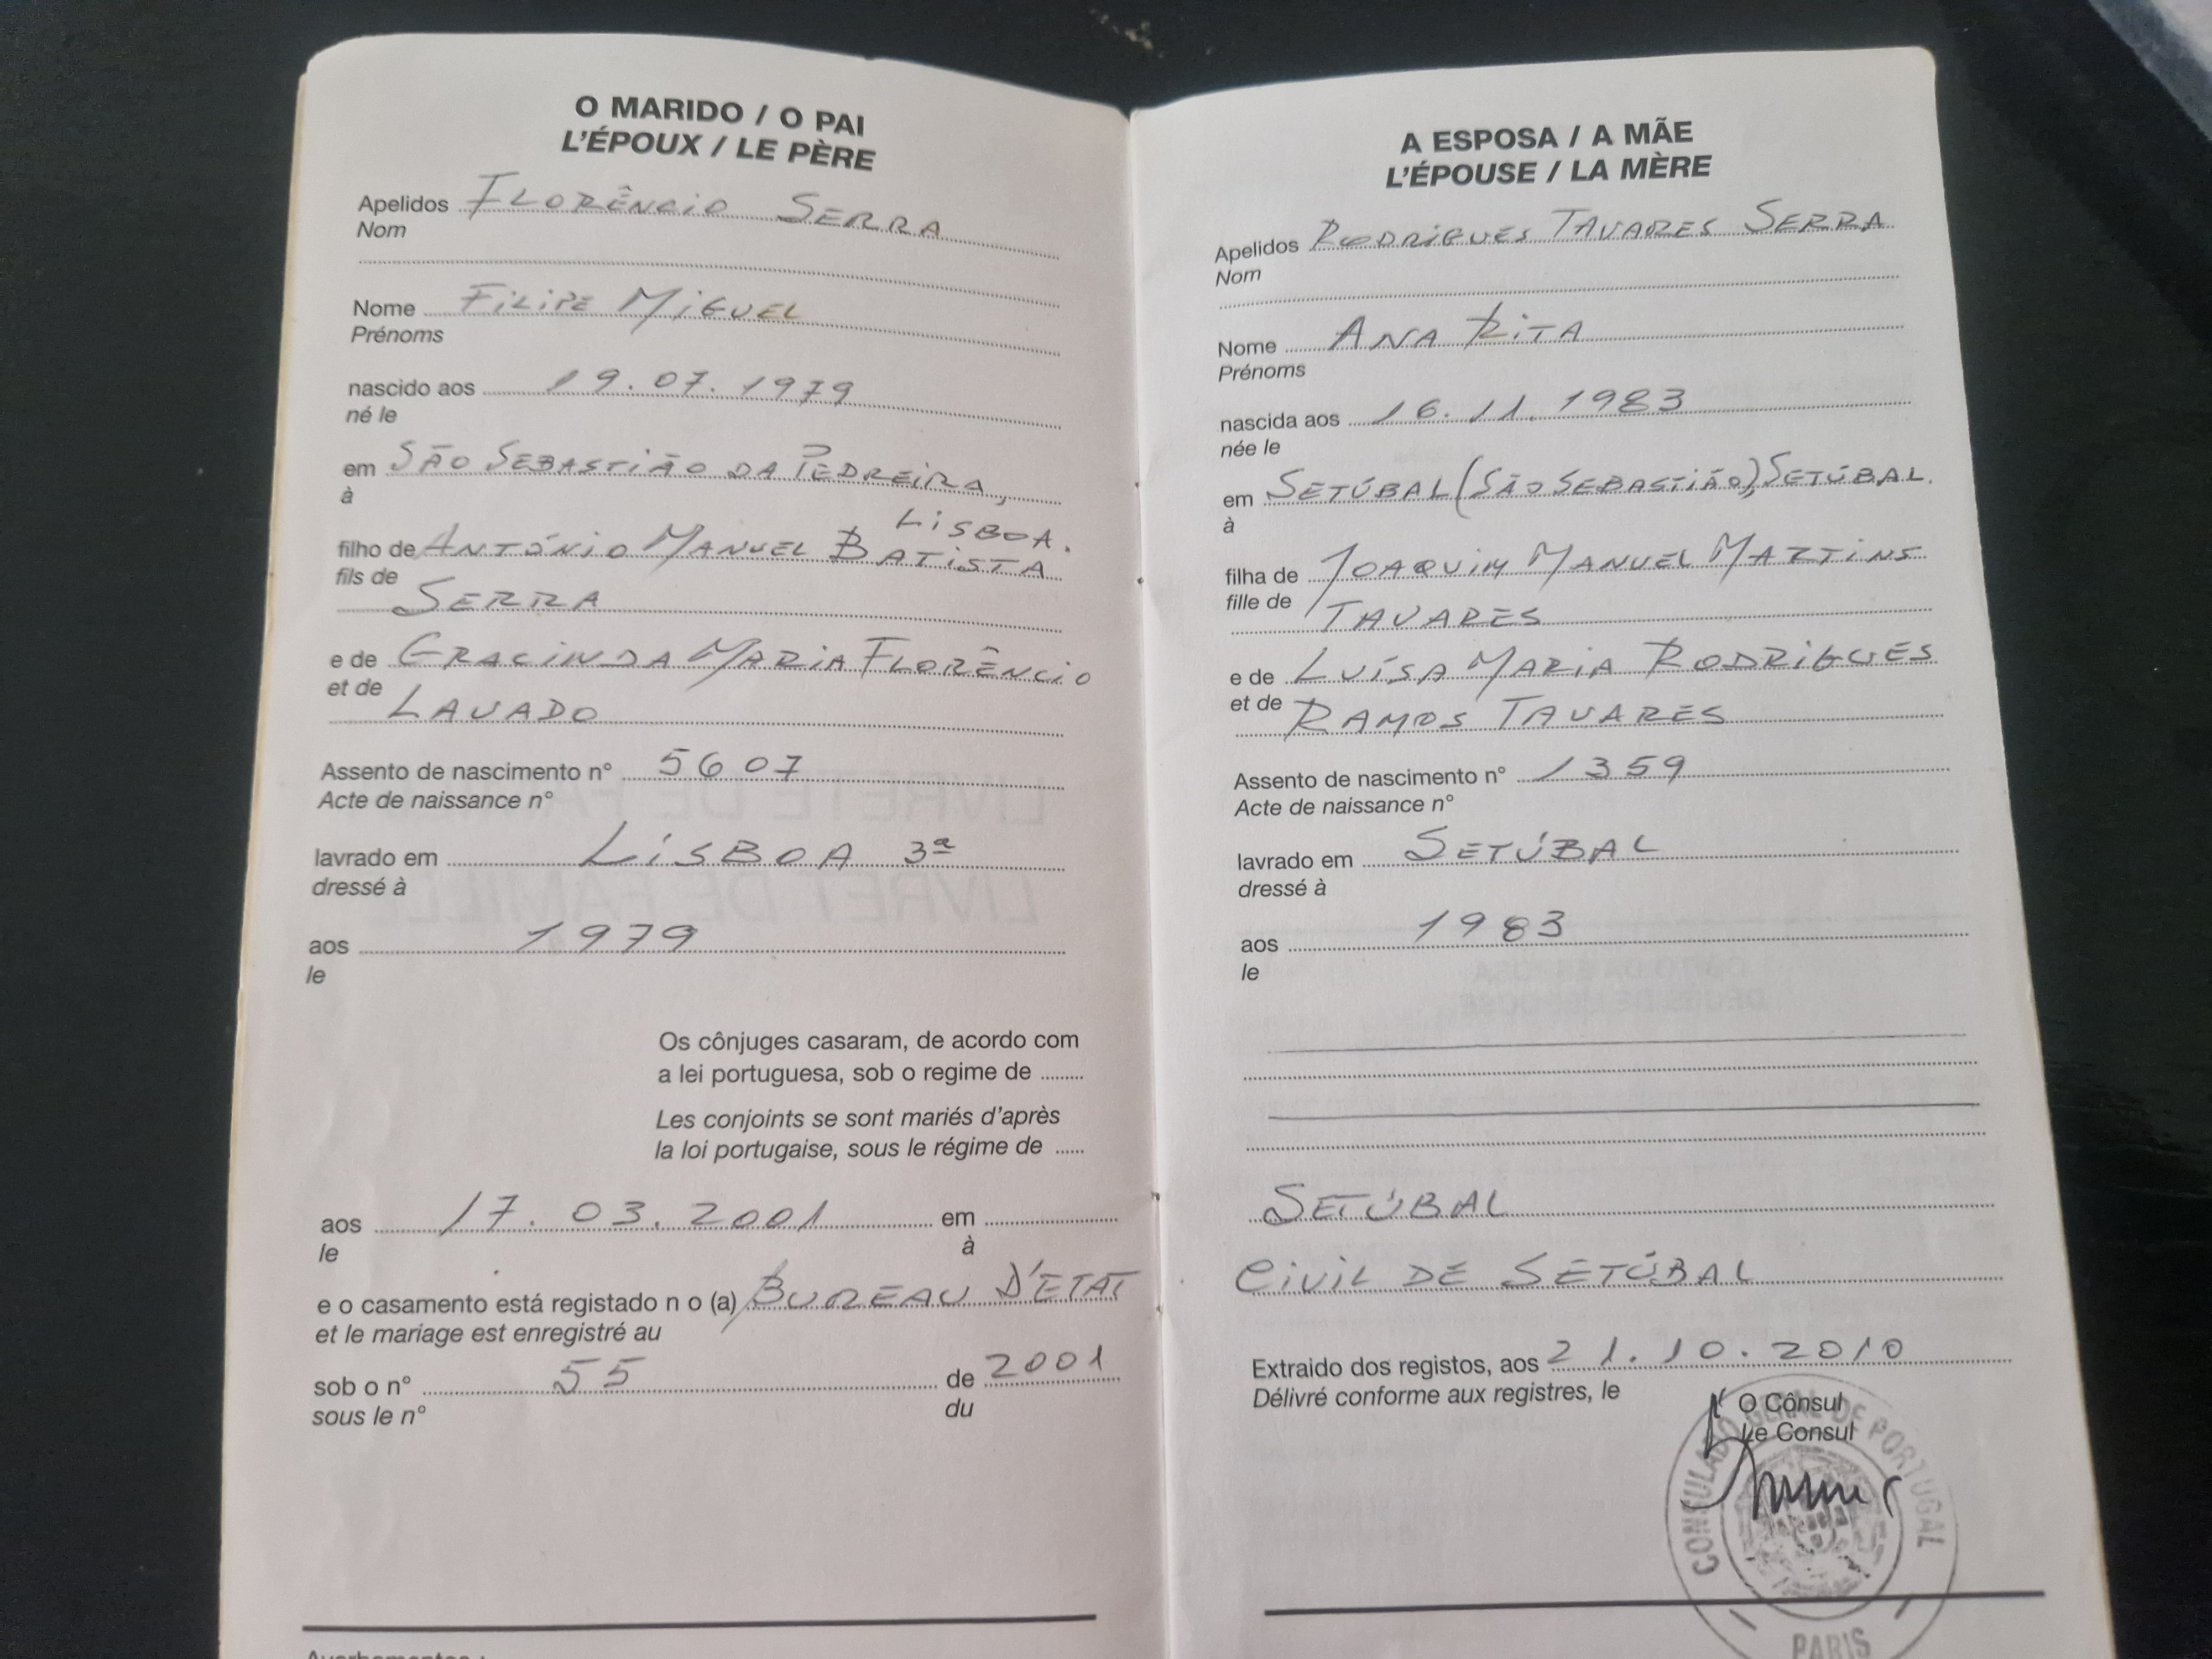 O MARIDO / O PAI
L'ÉPOUX / LE PÈRE
Apelidos FLORÊNCIO SERRA
Nom
Nome FILIPE MIGUEL
Prénoms
nascido aos 19.07.1979
né le
em SÃO SEBASTIÃO DA PEDREIRA,
à
LISBOA.
filho de ANTÓNIO MANUEL BATISTA
fils de
SERRA
e de GRACINDA MARIA FLORÊNCIO
et de
LAVADO
Assento de nascimento n° 5607
Acte de naissance n°
lavrado em LISBOA 3ª
dressé à
aos 1979
le
Os cônjuges casaram, de acordo com
a lei portuguesa, sob o regime de
Les conjoints se sont mariés d'après
la loi portugaise, sous le régime de
aos 17.03.2001 em
le à
e o casamento está registado n o (a) BUREAU D'ETAT
et le mariage est enregistré au
sob o n° 55 de 2001
sous le n° du
A ESPOSA / A MÃE
L'ÉPOUSE / LA MÈRE
Apelidos RODRIGUES TAVARES SERRA
Nom
Nome ANA RITA
Prénoms
nascida aos 16.11.1983
née le
em SETÚBAL (SÃO SEBASTIÃO), SETÚBAL.
à
filha de JOAQUIM MANUEL MARTINS
fille de
TAVARES
e de LUÍSA MARIA RODRIGUES
et de
RAMOS TAVARES
Assento de nascimento n° 1359
Acte de naissance n°
lavrado em SETÚBAL
dressé à
aos 1983
le
SETÚBAL
CIVIL DE SETÚBAL
Extraido dos registos, aos 21.10.2010
Délivré conforme aux registres, le
O Cônsul
Le Consul
CONSULADO GERAL DE PORTUGAL
PARIS